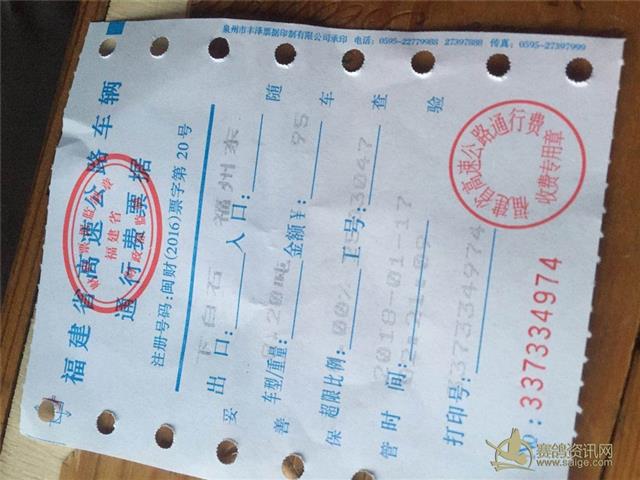 福建省高速公路车辆
通行费票据
福建省
注册号码:闽财(2016)票字第20号
出口:下白石 入口:福州东
车型/重量: 20吨 金额¥: 95
超限比例: .00% 工号: 3047
时间: 2018-01-17
打印号: 3373334974
NO:3373334974
随车查验
妥善保管
省高速公路通行费
收费专用章
泉州市丰泽票据印制有限公司承印 电话:0595-22779988 27397888 传真:0595-27397999
赛鸽资讯网
www.saige.com